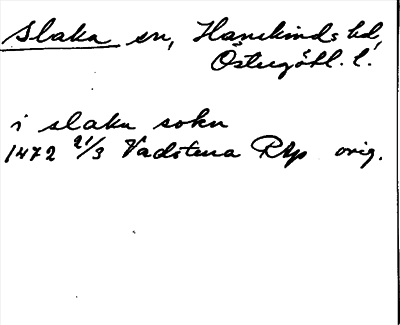 Slaka sn, Hanekinds hd,
Östergötl. l.
i slaka sokn
1472 21/3 Vadstena RAp orig.